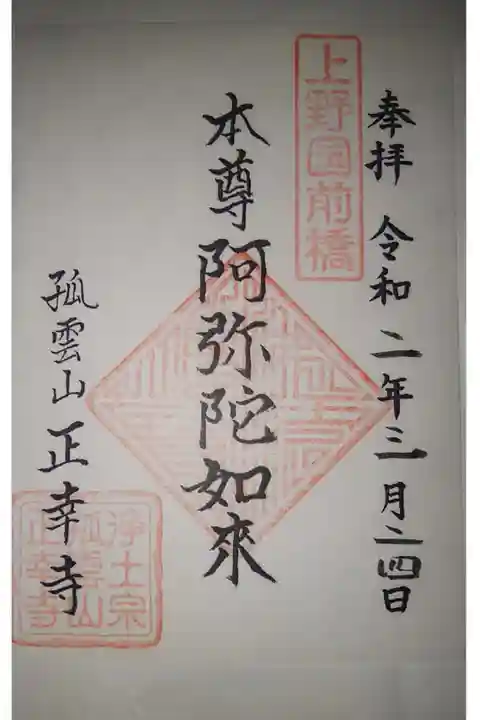 奉拝 令和二年三月二四日
上野国前橋
本尊阿弥陀如來
孤雲山正幸寺
浄土宗
孤雲山
正幸寺